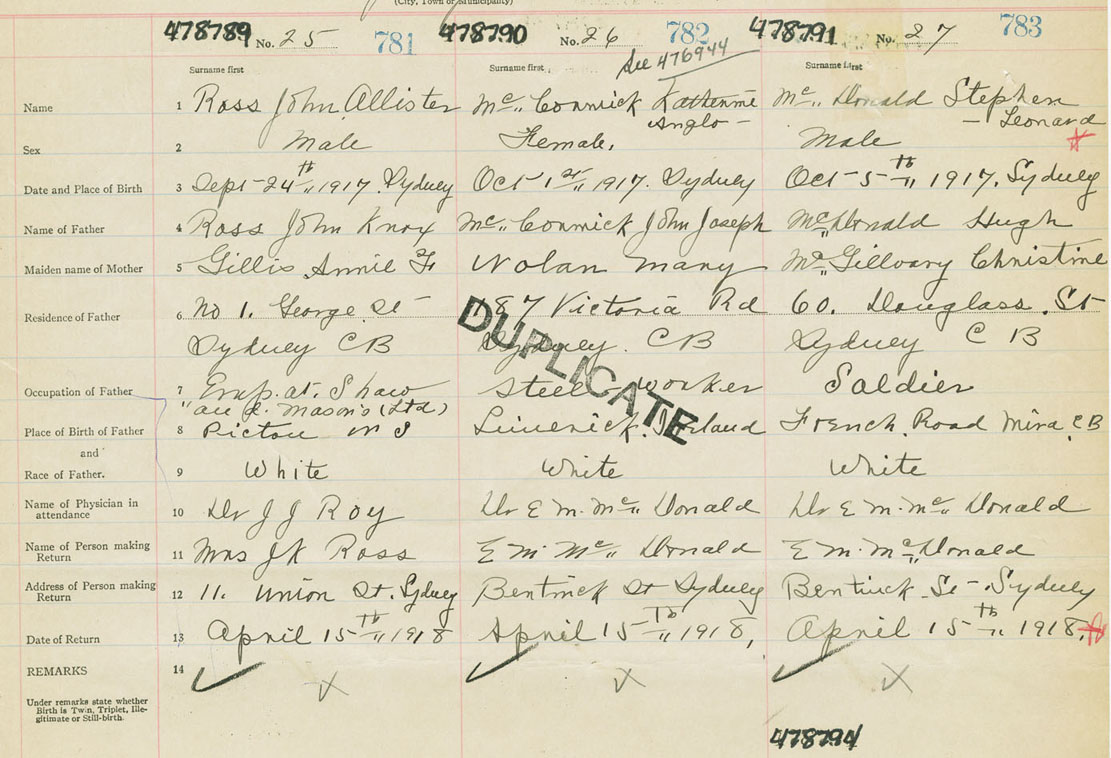 (City, Town or Municipality)
478789 No. 25 781 478790 No. 26 782 478791 No. 27 783
See 476944
Surname first Surname first Surname first
Name 1 Ross John Allister Mc„ Cormick Katherine Mc„ Donald Stephen
Anglo – – Leonard
Sex 2 Male Female, Male
Date and Place of Birth 3 Sept 24th„ 1917. Sydney Oct 1st„ 1917. Sydney Oct 5th„ 1917. Sydney
Name of Father 4 Ross John Knox Mc„ Cormick John Joseph Mc„ Donald Hugh
Maiden name of Mother 5 Gillis Annie F Nolan Mary Mc„ Gillvary Christine
Residence of Father 6 No 1. George St 187 Victoria Rd 60. Douglass. St
Sydney C B Sydney. C B Sydney C B
DUPLICATE
Occupation of Father 7 Emp. at. Shaw Steel worker Soldier
" Mason's (Ltd)
Place of Birth of Father 8 Pictou N S Limerick. Ireland French. Road Mira. C B
and
Race of Father. 9 White White White
Name of Physician in
attendance 10 Dr J J Roy Dr E M. Mc„ Donald Dr E M. Mc„ Donald
Name of Person making
Return 11 Mrs J K Ross E M. Mc„ Donald E M. Mc„ Donald
Address of Person making
Return 12 11. Union St. Sydney Bentinck St Sydney Bentinck St - Sydney
Date of Return 13 April 15th„ 1918 April 15th„ 1918, April 15th„ 1918,
REMARKS 14
Under remarks state whether
Birth is Twin, Triplet, Ille-
gitimate or Still-birth.
478794